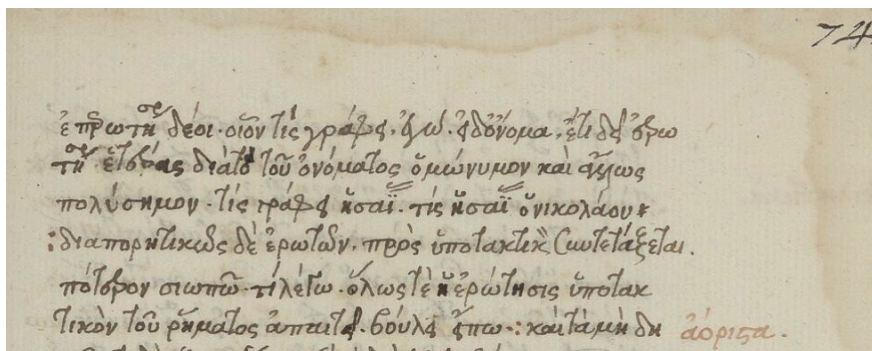 74
δέοι· οἷον τίς γράφει· ἐγώ· εἰ δ' ὄνομα, ἔτι δεῖ ἐρω
ἑτέρας διὰ τὸ τοῦ ὀνόματος ὁμώνυμον καὶ ἄλλως
πολύσημον· τίς γράφει ἡσαΐ· τίς ἡσαΐ ὁ νικολάου
:διαπορητικῶς δὲ ἐρωτῶν, πρὸς ὑποτακτικὸν συντετάξεται.
πότερον σιωπῶ· τί λέγω· ὅλως τὲ ἡ ἐρώτησις ὑποτακ
τικὸν τοῦ ῥήματος ἀπαιτεῖ· βούλει εἴπω·: καὶ τὰ μὴ δη ἀόριστα.